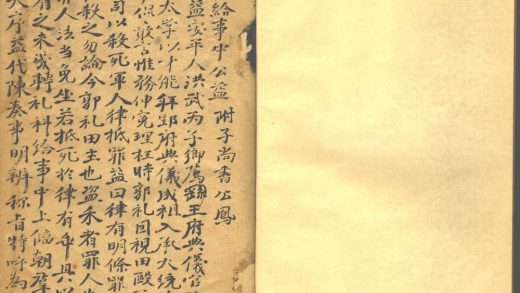 給事中公益 附子尚書公鳳
益安平人洪武丙子鄉薦王府典儀官
太学以才能拜郢府典儀成祖入承大統
侃敢言惟務伸冤理枉時郭礼回視田毆
司以殺死軍人律抵罪益曰律有明條罪
殺之勿論今郭礼田主也盜禾者罪人
人法当免坐若抵死於律有乖具
有之未幾轉礼科給事中上臨朝
序益代陳奏事明辨称旨特呼為